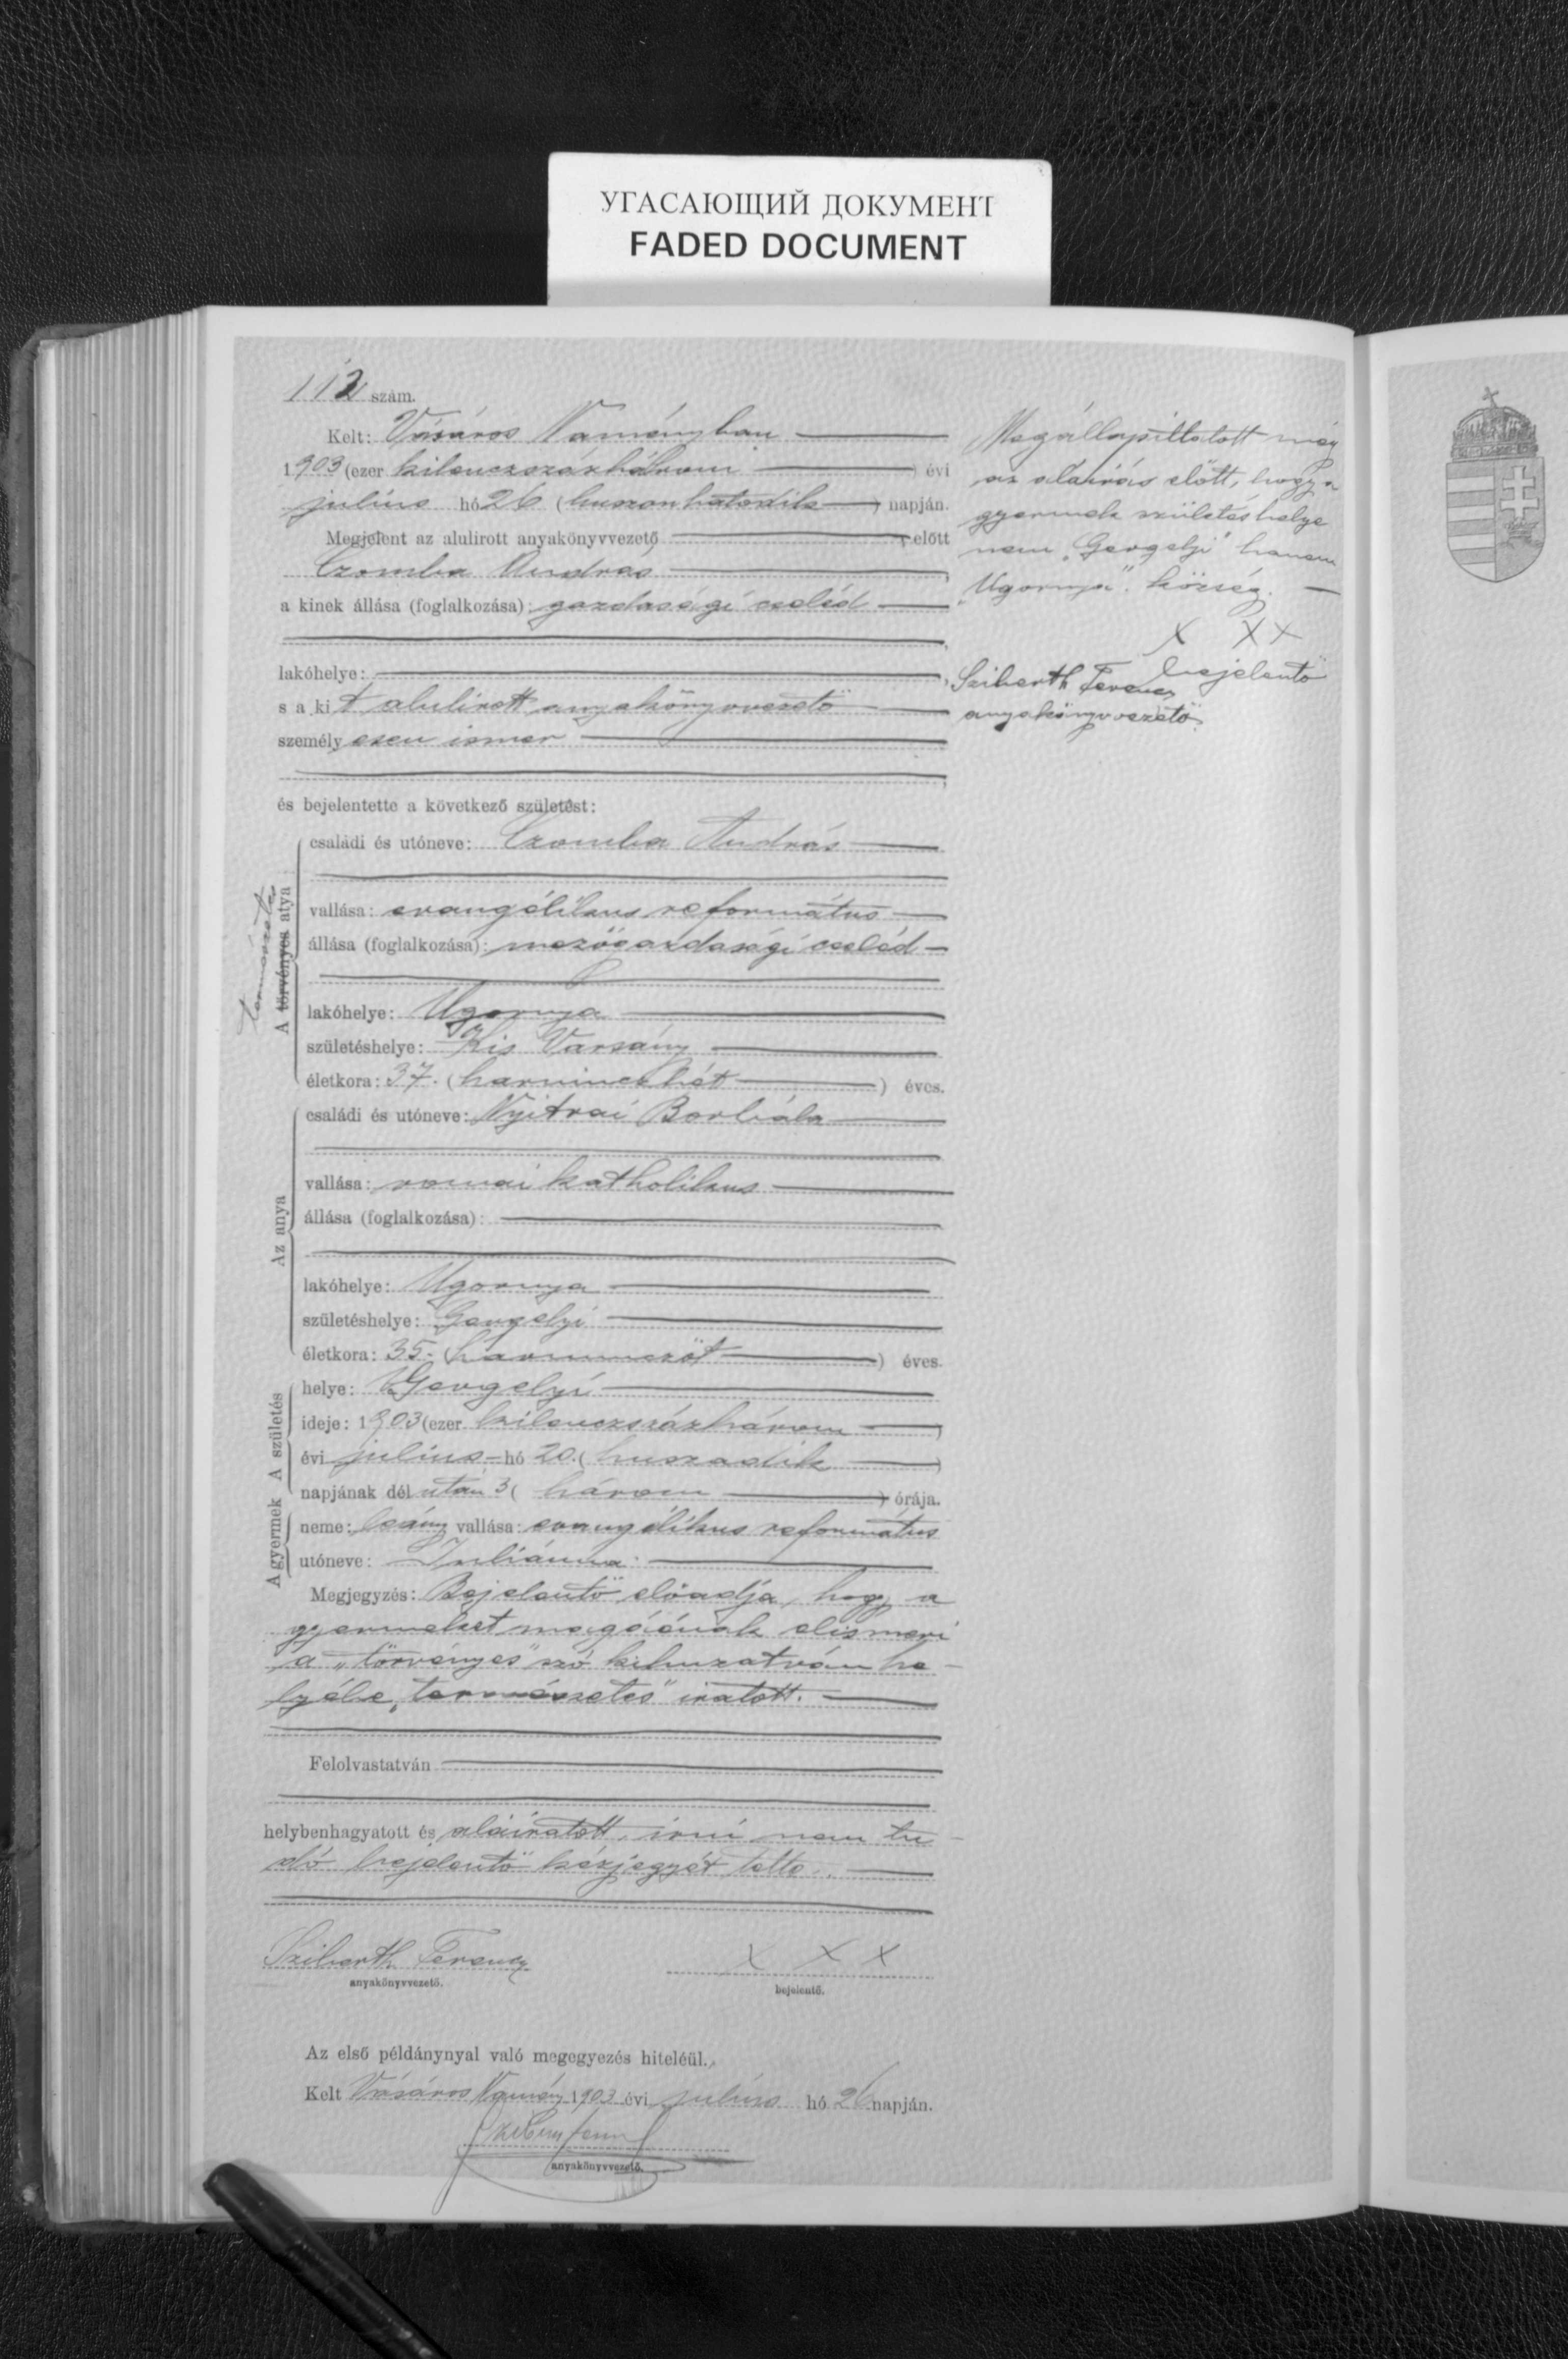 УГАСАЮЩИЙ ДОКУМЕНТ
FADED DOCUMENT
112 szám.
Kelt: Vásáros Naményban
1903 (ezer kilenczszázhárom) évi
július hó 26 (huszonhatodik) napján.
Megjelent az alulirott anyakönyvvezető előtt
Czomba András
a kinek állása (foglalkozása): gazdasági cseléd
lakóhelye:
s a kit alulirott anyakönyvvezető
személyesen ismer
és bejelentette a következő születést:
A törvényes atya
természetes
családi és utóneve: Czomba András
vallása: evangélikus református
állása (foglalkozása): mezőgazdasági cseléd
lakóhelye: Ugornya
születéshelye: Kis Varsány
életkora: 37. (harminczhét) éves.
Az anya
családi és utóneve: Nyitrai Borbála
vallása: római katholikus
állása (foglalkozása):
lakóhelye: Ugornya
születéshelye: Gergelyi
életkora: 35. (harminczöt) éves.
A születés
helye: Gergelyi
ideje: 1903 (ezer kilenczszázhárom)
évi július hó 20. (huszadik)
napjának dél után 3 (három) órája.
A gyermek
neme: leány vallása: evangélikus református
utóneve: Juliánna
Megjegyzés: Bejelentő előadja, hogy a
gyermeket magáénak elismeri
a „törvényes" szó kihuzatván he-
lyébe „természetes" iratott.
Felolvastatván
helybenhagyatott és aláiratott, irni nem tu-
dó bejelentő kézjegyét tette.
Sziberth Ferencz
anyakönyvvezető.
X X X
bejelentő.
Az első példánynyal való megegyezés hiteléül.
Kelt Vásáros Namény 1903 évi július hó 26 napján.
anyakönyvvezető.
Megállapittatott még
az aláirás előtt, hogy a
gyermek születéshelye
nem „Gergelyi" hanem
„Ugornya". község.
X XX
bejelentő
Sziberth Ferencz
anyakönyvvezető.